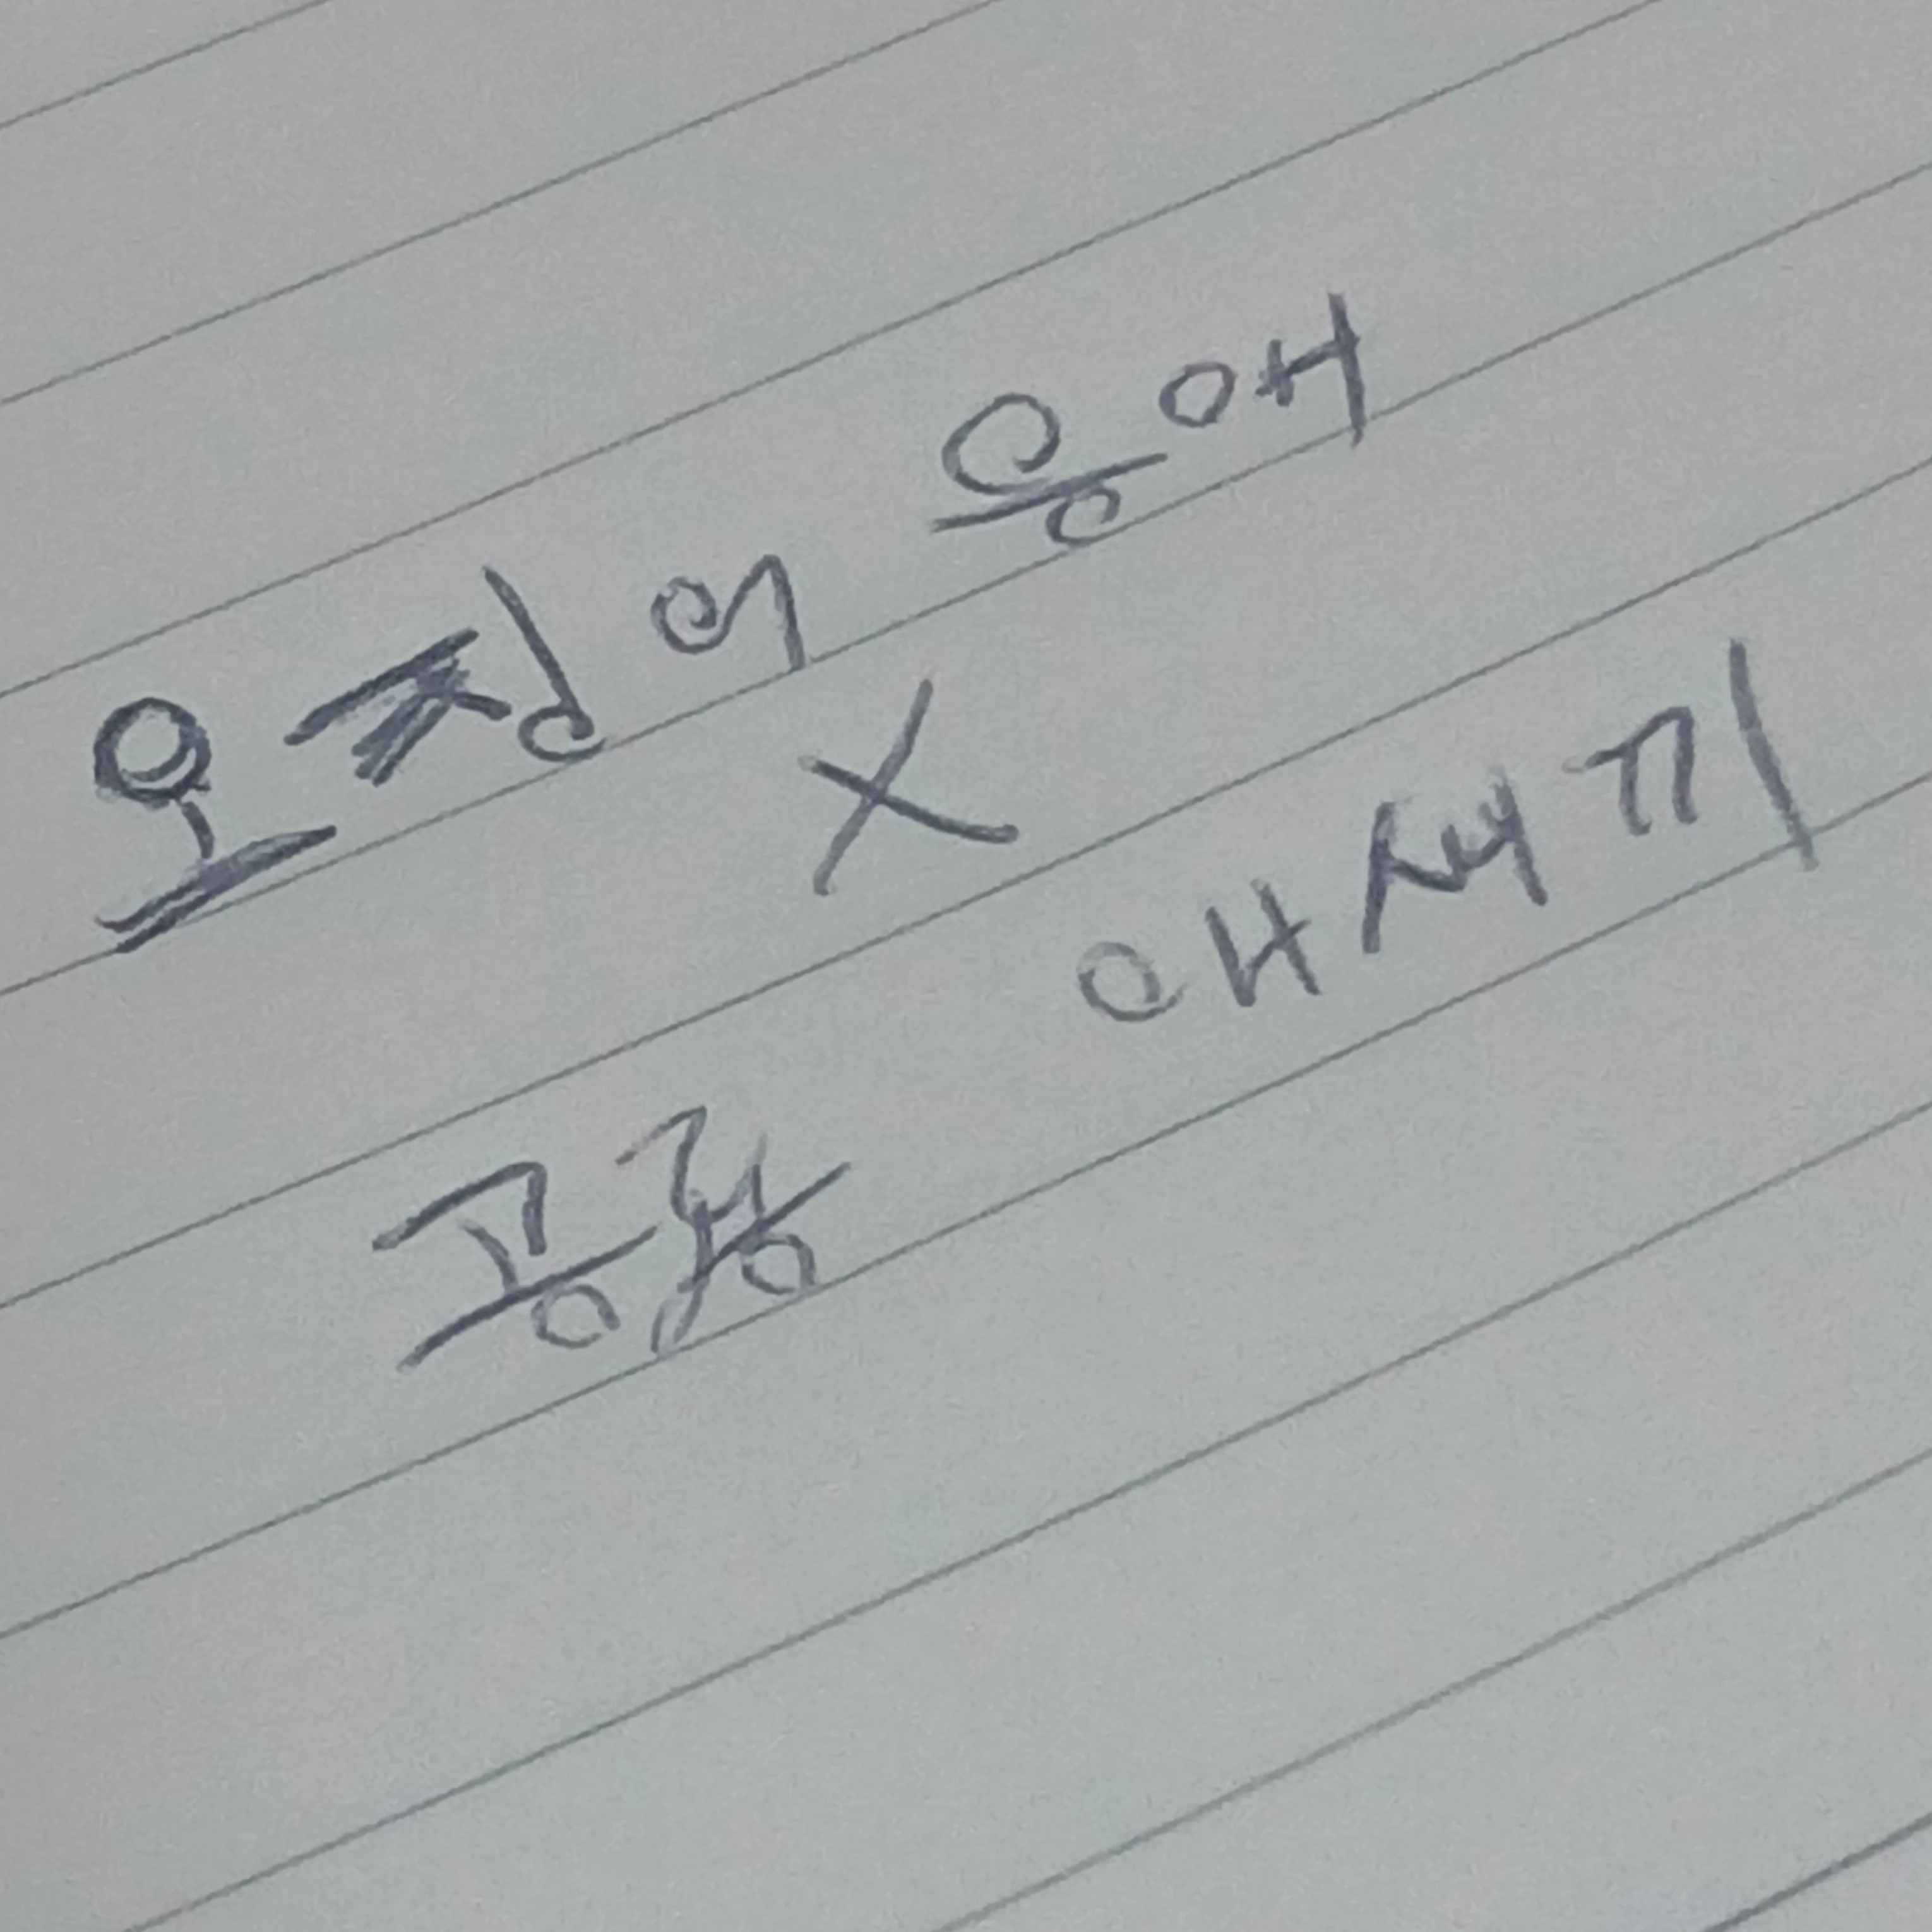 오징어 응애
X
공룡 애새끼